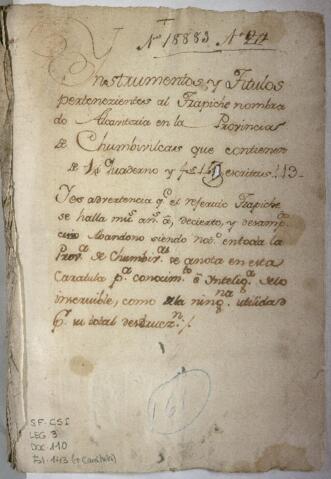 Nº 18883 Nº
Ynstrumentos y Titulos
pertenezientes al Trapiche nombra
do Alcantaria en la Provincia
de Chumbivilcas que contienen
de 1 Quaderno y fs escritas
Y es advertencia q.e el referido Trapiche
se halla decierto, y desamp
Abandono siendo not.o entoda la
Prov.a de Chumbiv.as se anota en esta
Caratula p.a conocim.to é Yntelig.a
inservible, como de ning.na utilidad
P. su total
161
S.F-CSI
LEG. 3
DOC. 110
Fol. 143 (+ Carátula)